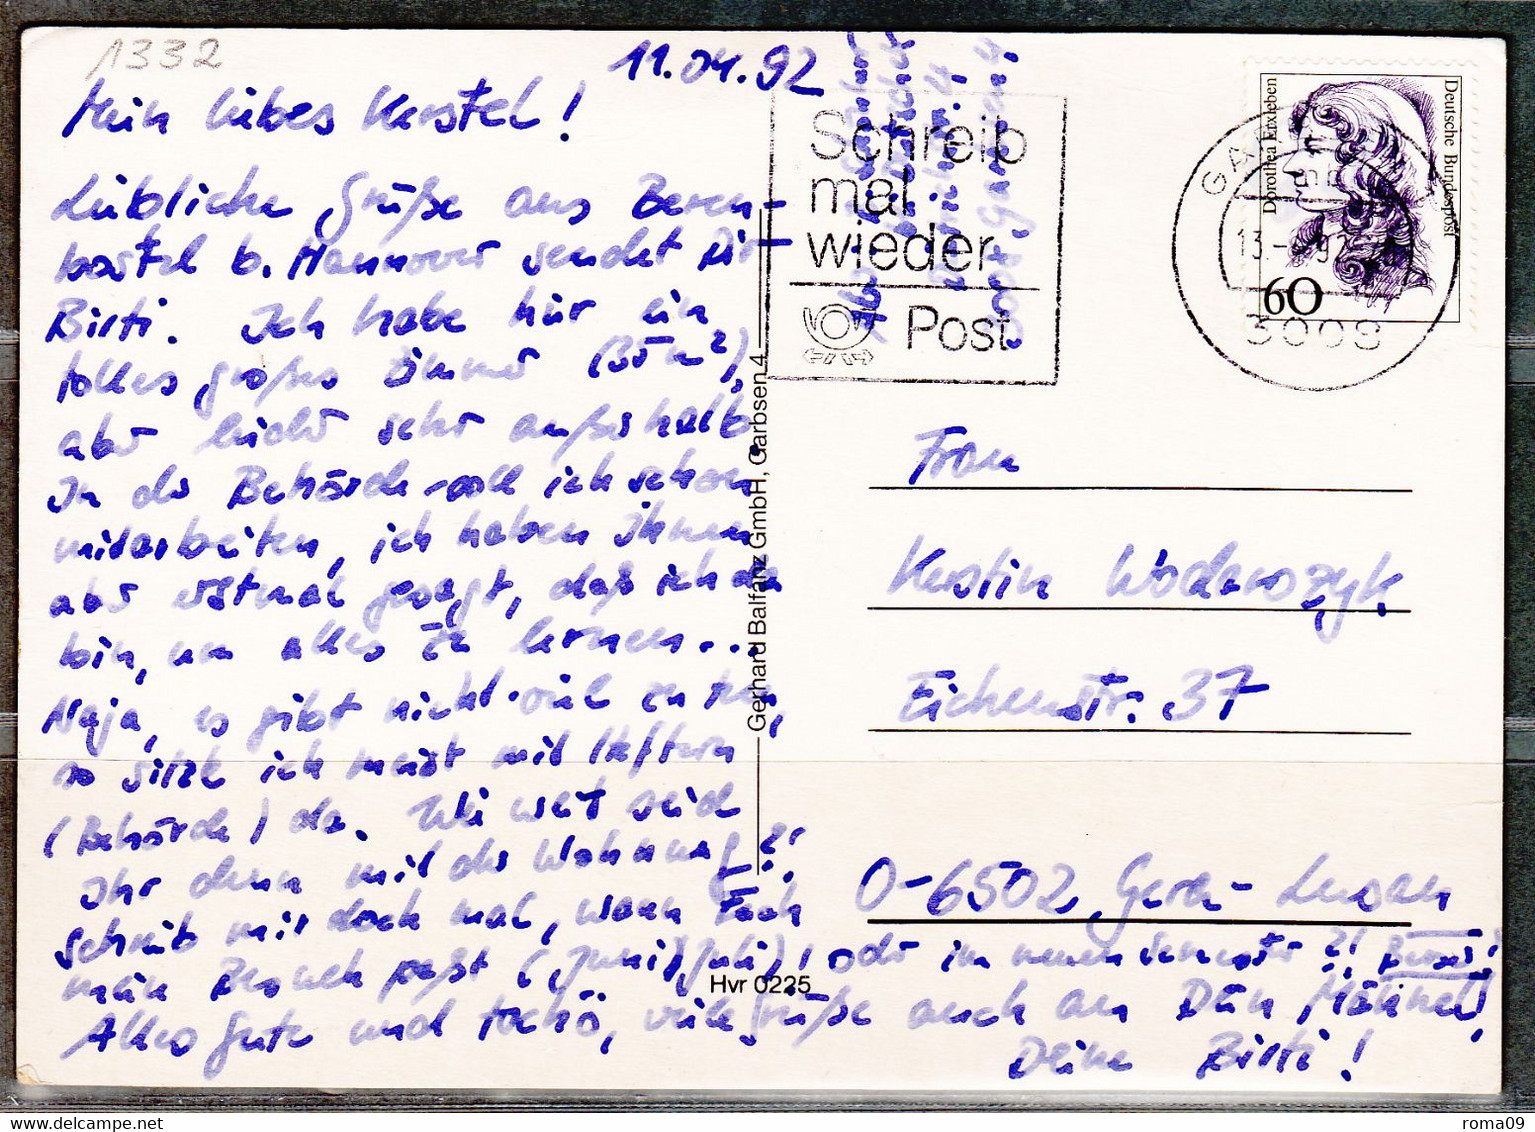 1332
11.04.92
Mein liebes Kerstel!
Liebliche Grüße aus Beren-
bostel b. Hannover sendet Dir
Birti. Ich habe hier ein
tolles großes Zimmer (35 m²),
aber leider sehr außerhalb.
In der Behörde soll ich schon
mitarbeiten, ich haben ihnen
aber erstmal gesagt, daß ich da
bin, um alles zu lernen...
Naja, es gibt nicht viel zu tun,
so sitze ich meist mit Heftern
(Behörde) da. Wie weit seid
Ihr denn mit der Wohnung?!
Schreib mir doch mal, wann Euch
mein Besuch paßt (Juni/Juli)! oder im neuen Semester?! Besser!
Alles Gute und tschö, viele Grüße auch an Dein
Deine Birti!
Gerhard Balfanz GmbH, Garbsen 4
Hvr 0225
3008 Garbsen 4
Schreib
mal
wieder
Post
GA
13.-4.92
3008
Deutsche Bundespost
Dorothea Erxleben
60
Frau
Kerstin Wodarszyk
Eichenstr. 37
O-6502 Gera-Lusan
delcampe.net
roma09